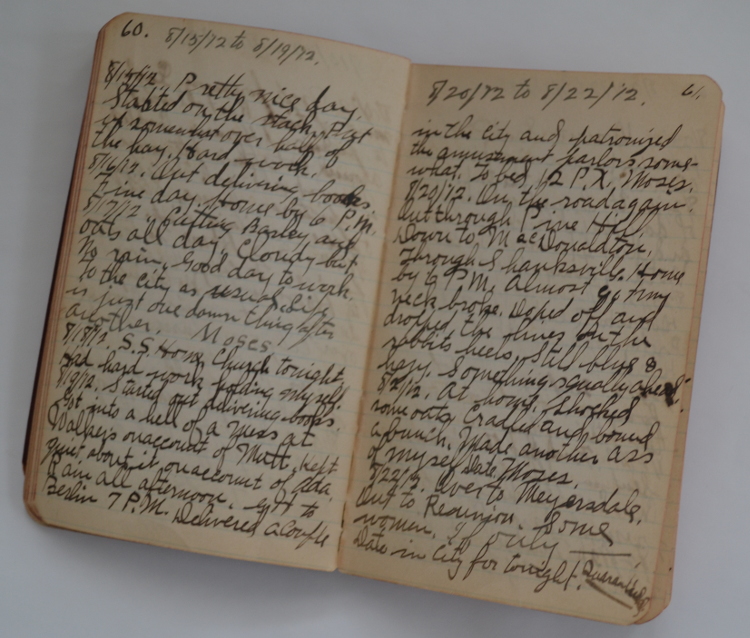 60. 8/15/12 to 8/19/12.
8/15/12 Pretty nice day.
Started on the stack. Put
up somewhat over half of
the hay. Hard work.
8/16/12. Out delivering books
Fine day. Home by 6 P.M.
8/17/12. Cutting Barley and
oats all day. Cloudy but
no rain. Good day to work.
To the city as usual. Life
is just one damn thing after
another. Moses
8/18/12. S.S. Home, Church tonight
Had hard work holding myself.
8/19/12. Started out delivering books.
Got into a hell of a mess at
Walkers on account of Mutt. Kept
quiet about it on account of Ada.
Rain all afternoon. Got to
Berlin 7 P.M. Delivered a couple
8/20/12 to 8/22/12. 61.
in the city and patronized
the amusement parlors some-
what. To bed 12 P.X. Moses.
8/20/12. On the road again.
Out through Pine Hill
Down to MacDonaldton,
Through Shanksville. Home
by 6 P.M. Almost got my
neck broke. Dozed off and
dropped the lines on the
rabbits heels. Still blue &
hazy. Something squally ahead.
8/21/12. At home. Shocked
some oats. Cradled and bound
a bunch. Made another ass
of myself. Date Moses.
8/22/12. Over to Meyersdale.
Out to Reunion. Some
women. If only
Date in City for tonight.